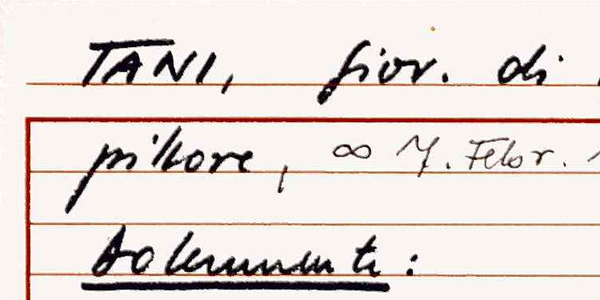 TANI, giov. di
pittore, ∞ 7. Febr.
Dokumente: